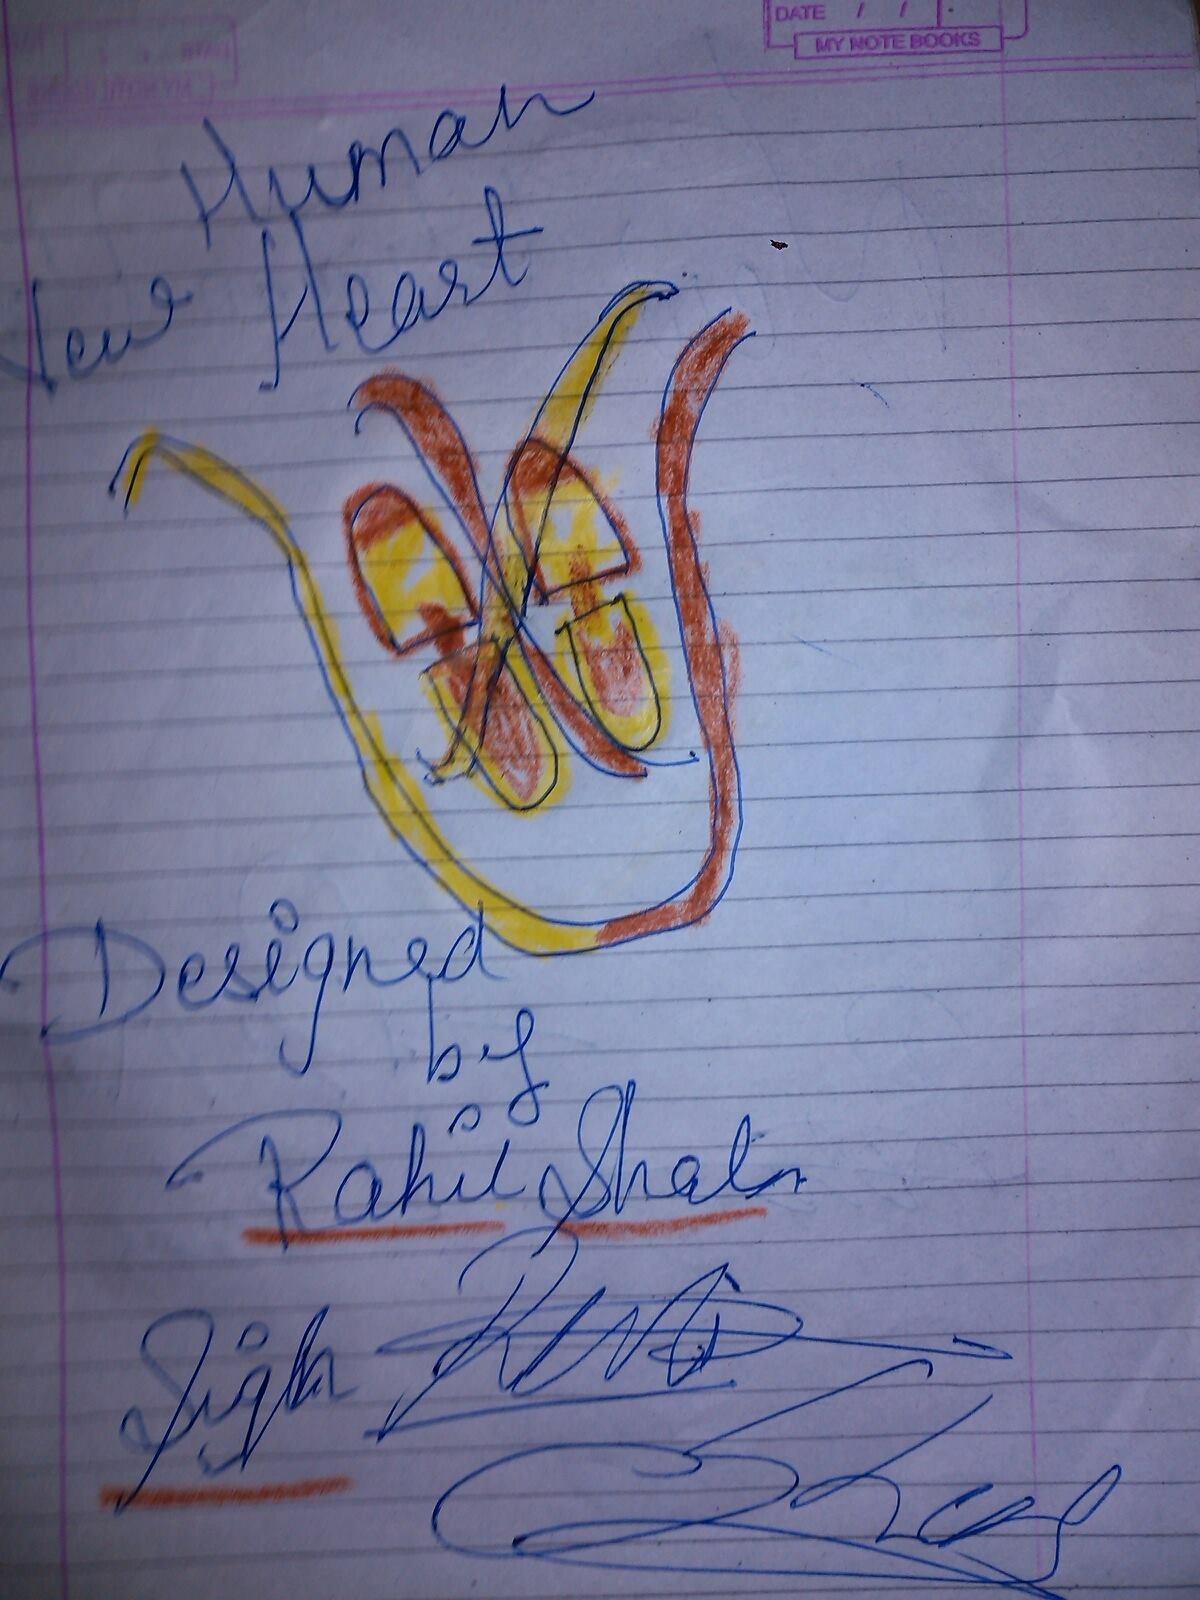 DATE / /
MY NOTE BOOKS
Human
New Heart
Designed
by
Rahil Shah
Sign